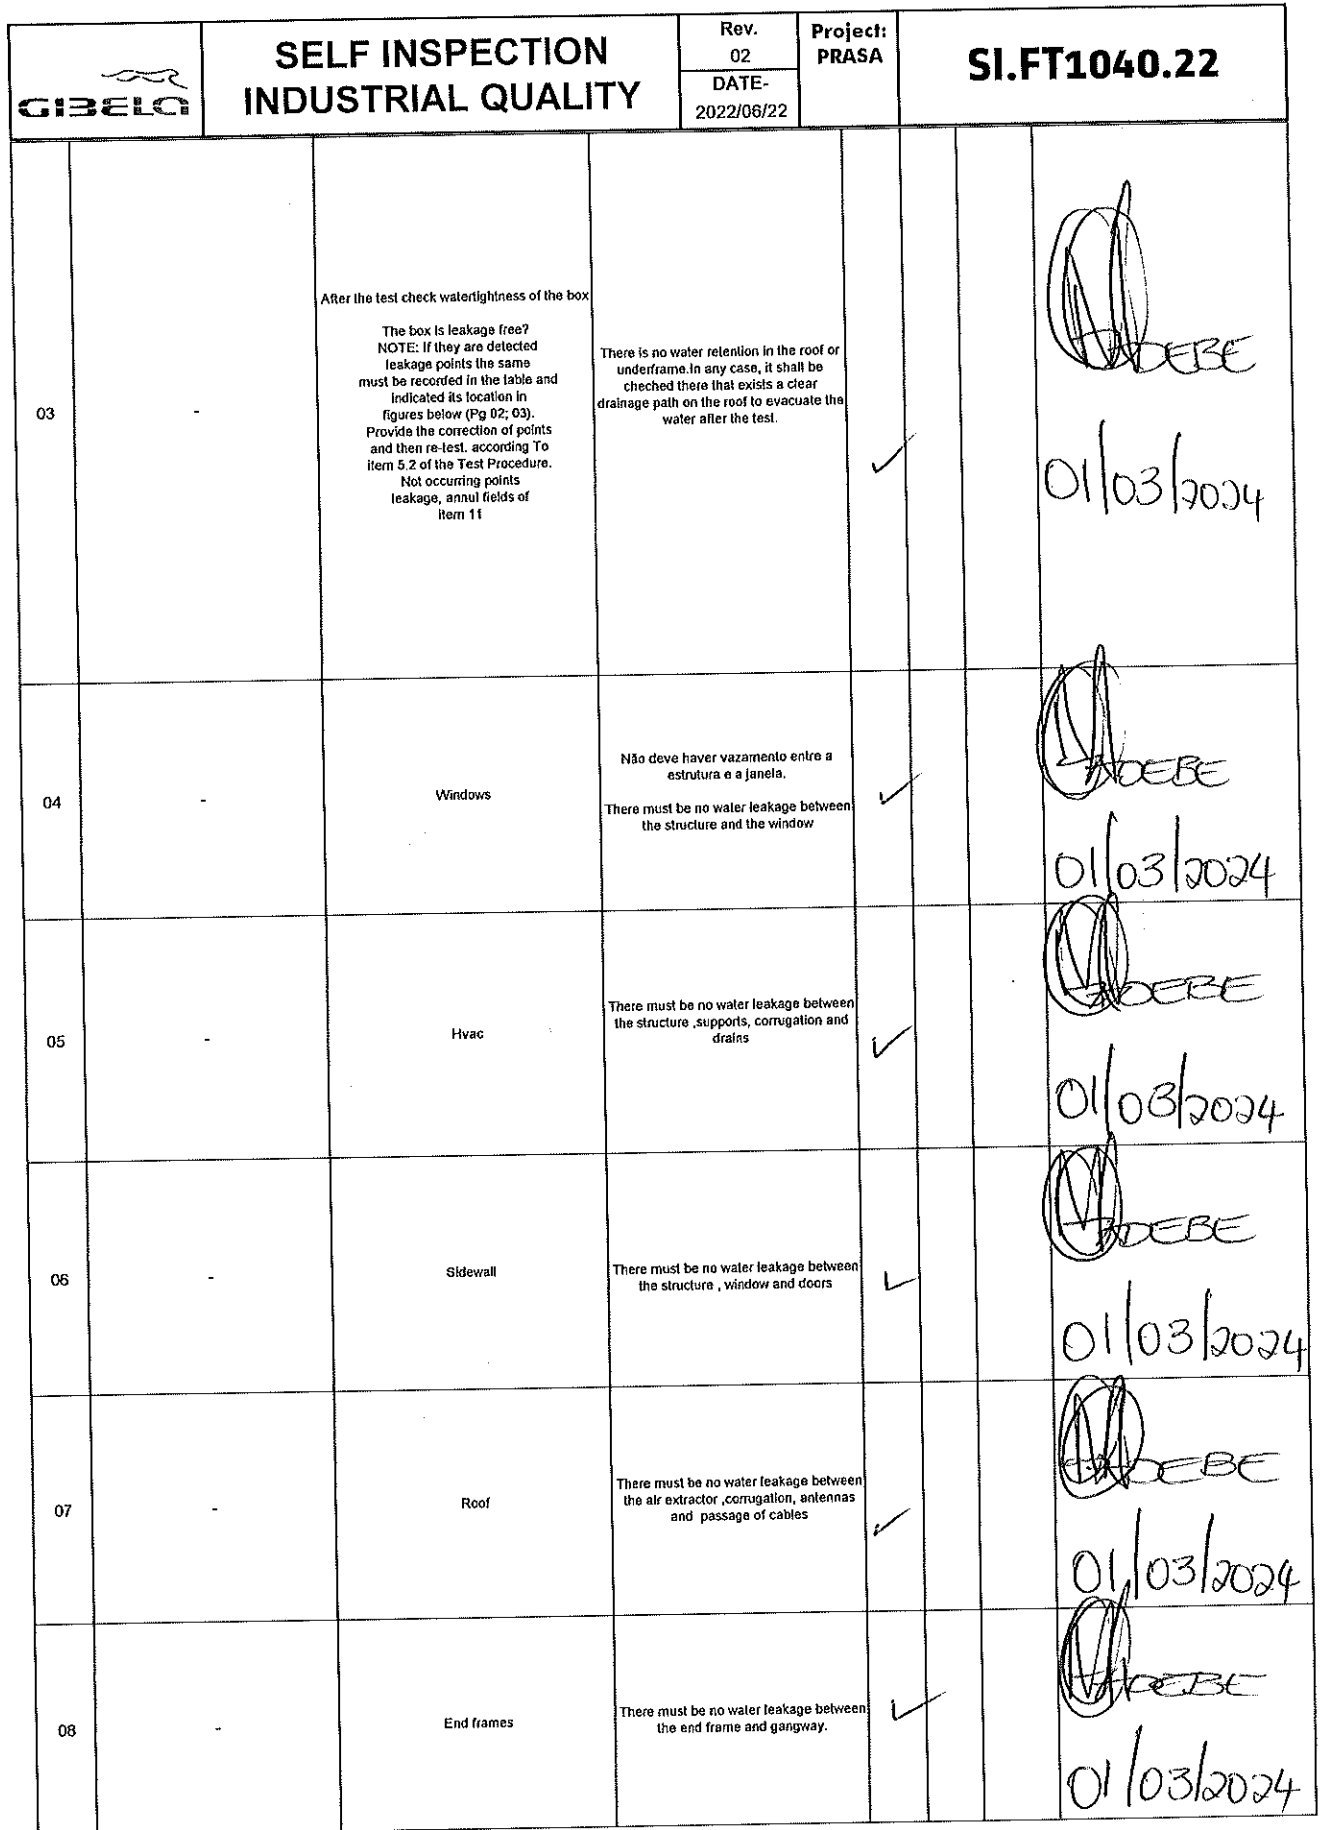 GIBELA
SELF INSPECTION
INDUSTRIAL QUALITY
Rev.
02
DATE-
2022/06/22
Project:
PRASA
SI.FT1040.22
03
-
After the test check watertightness of the box
The box is leakage free?
NOTE: If they are detected
leakage points the same
must be recorded in the table and
indicated its location in
figures below (Pg 02; 03).
Provide the correction of points
and then re-test. according To
item 5.2 of the Test Procedure.
Not occurring points
leakage, annul fields of
item 11
There is no water retention in the roof or
underframe.In any case, it shall be
cheched there that exists a clear
drainage path on the roof to evacuate the
water after the test.
✓
01/03/2024
04
-
Windows
Não deve haver vazamento entre a
estrutura e a janela.
There must be no water leakage between
the structure and the window
✓
01/03/2024
05
-
Hvac
There must be no water leakage between
the structure ,supports, corrugation and
drains
✓
01/03/2024
06
-
Sidewall
There must be no water leakage between
the structure , window and doors
✓
01/03/2024
07
-
Roof
There must be no water leakage between
the air extractor ,corrugation, antennas
and passage of cables
✓
01/03/2024
08
-
End frames
There must be no water leakage between
the end frame and gangway.
✓
01/03/2024